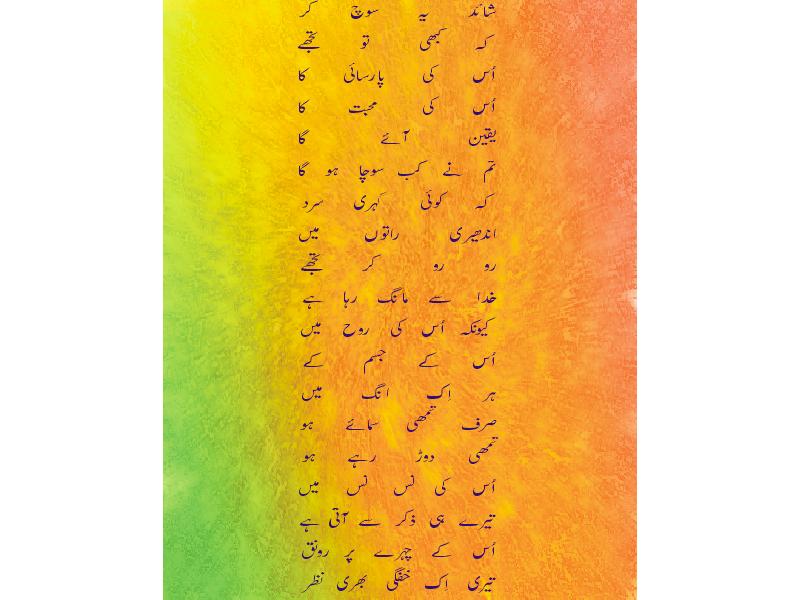 شائد یہ سوچ کر
کہ کبھی تو تجھے
اُس کی پارسائی کا
اُس کی محبت کا
یقین آئے گا
تم نے کب سوچا ہو گا
کہ کوئی کہری سرد
اندھیری راتوں میں
رو رو کر تجھے
خدا سے مانگ رہا ہے
کیونکہ اُس کی روح میں
اُس کے جسم کے
ہر اِک انگ میں
صرف تمھی سمائے ہو
تمھی دوڑ رہے ہو
اُس کی نس نس میں
تیرے ہی ذکر سے آتی ہے
اُس کے چہرے پر رونق
تیری اِک خفگی بھری نظر